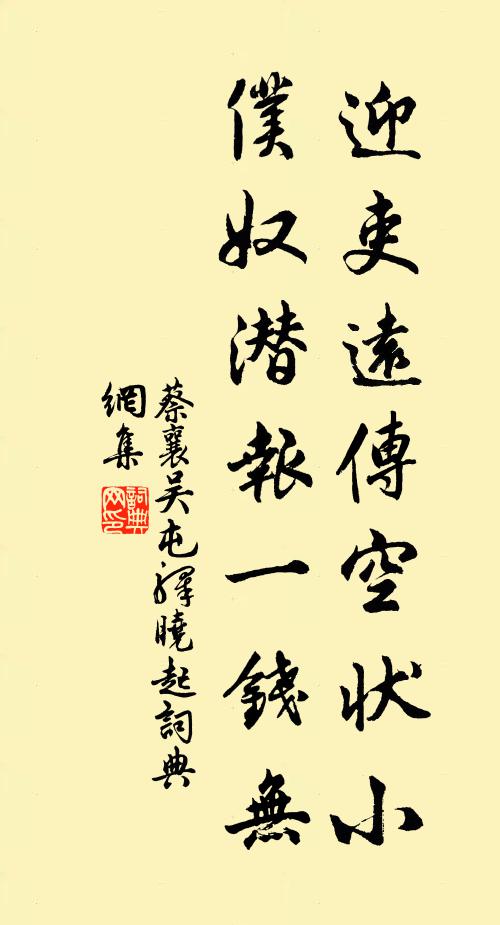 迎吏遠傳空狀小
僕奴潜報一錢無
蔡襄吴屯驛曉起詞典
網集
詞典
网印